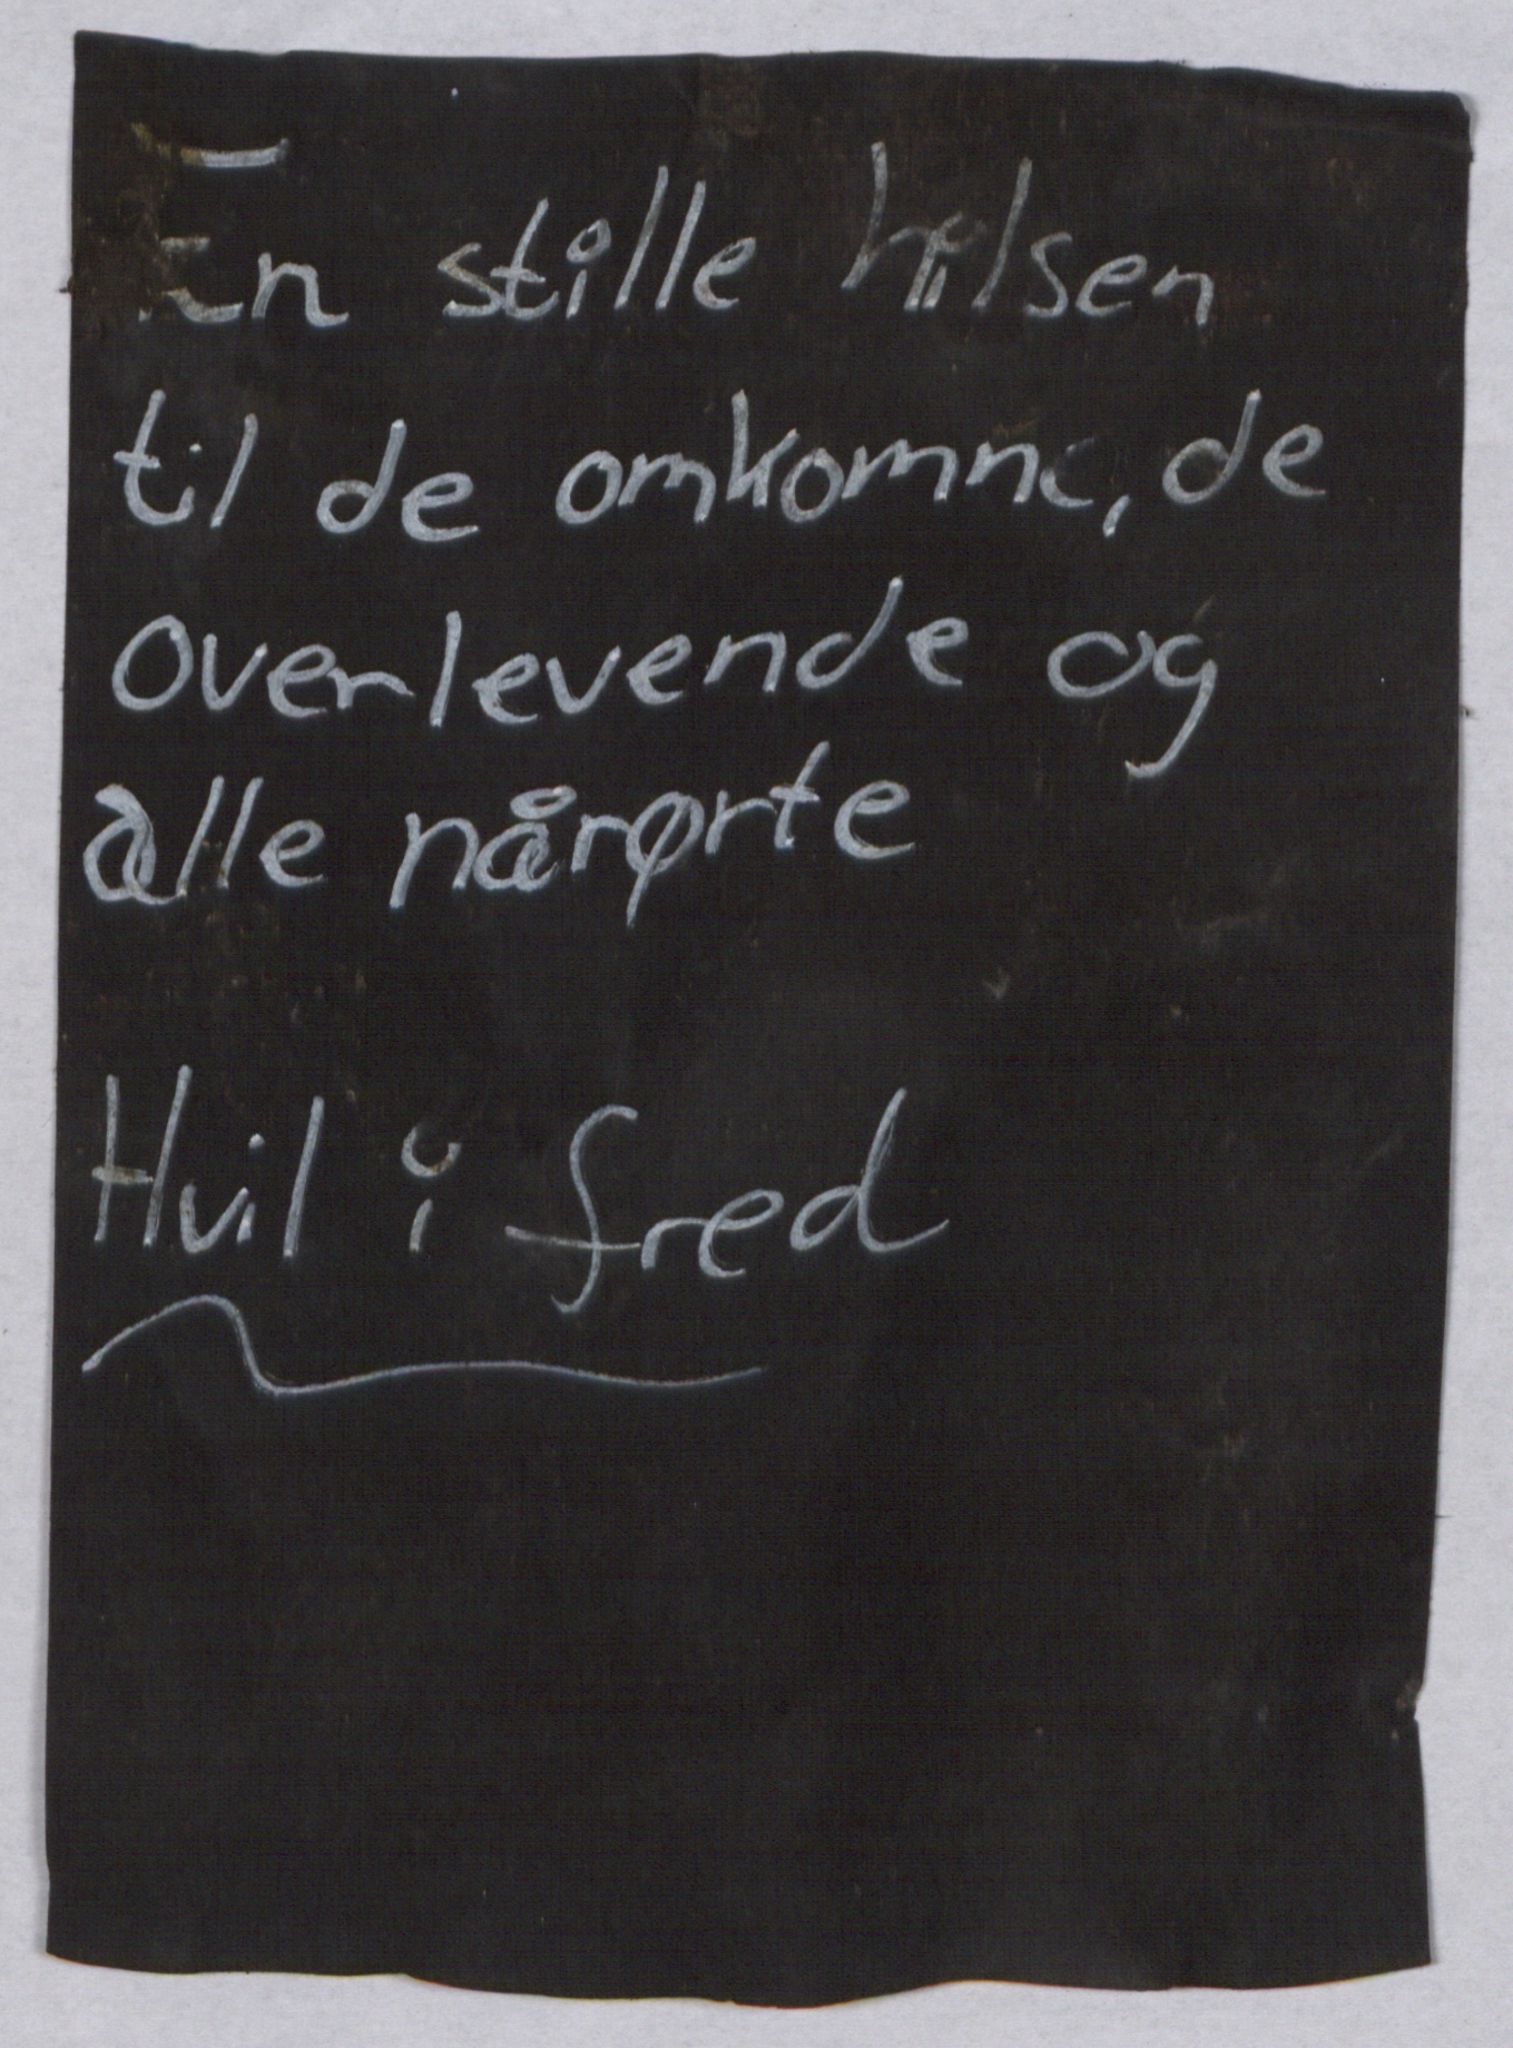 En stille hilsen
til de omkomne, de
overlevende og
alle nårørte
Hvil i fred